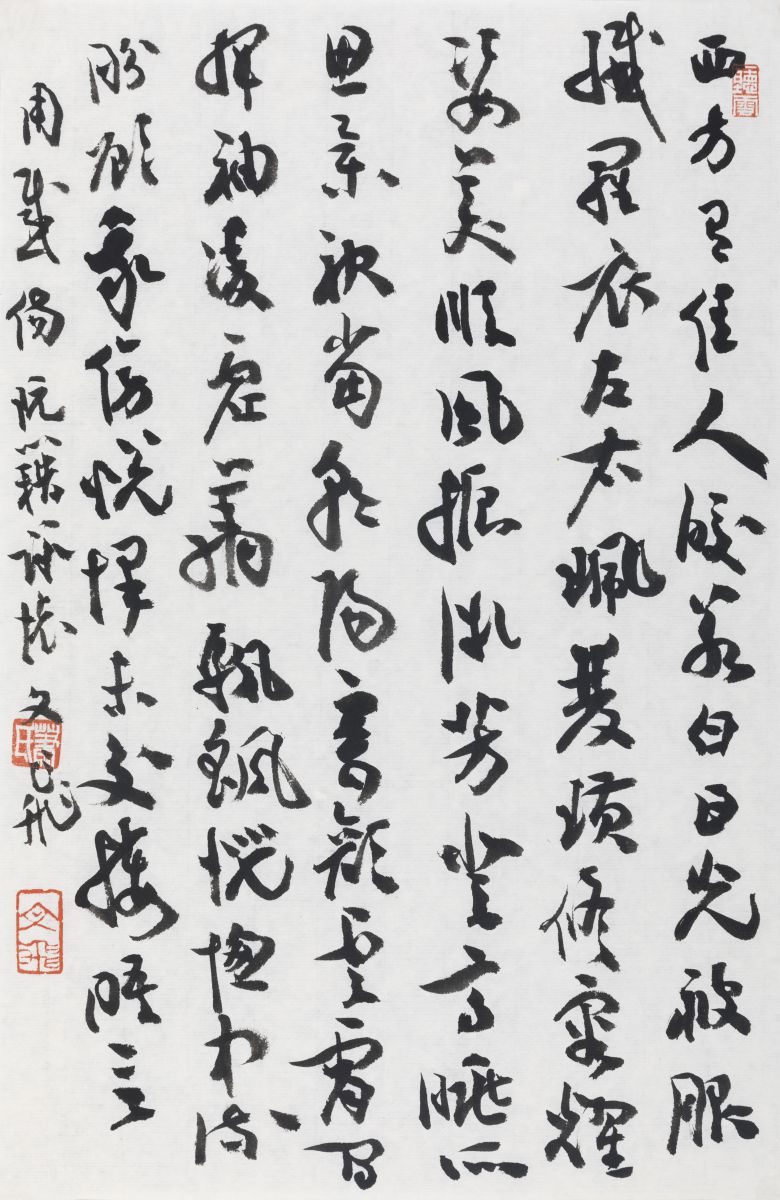 西方有佳人皎若白日光被服
纖羅衣左右珮雙璜修容耀
姿美順風振微芳登高眺所
思舉袂當朝陽寄顏雲霄間
揮袖凌虛翔飄颻恍惚中流
盼顧我傍悅懌未交接晤言
用感傷阮籍詠懷文飛
文飛